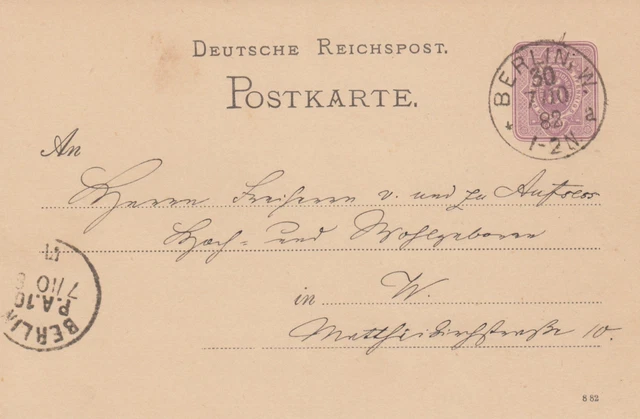 DEUTSCHE REICHSPOST.
POSTKARTE.
BERLIN, W.
30
7 10
82
1-2N.
a
An
Herrn Freiherrn v. und zu Aufsess
Hoch- und Wohlgeboren
in W.
Matthäikirchstraße 10.
BERLIN
P.A.10
7/10
8 82